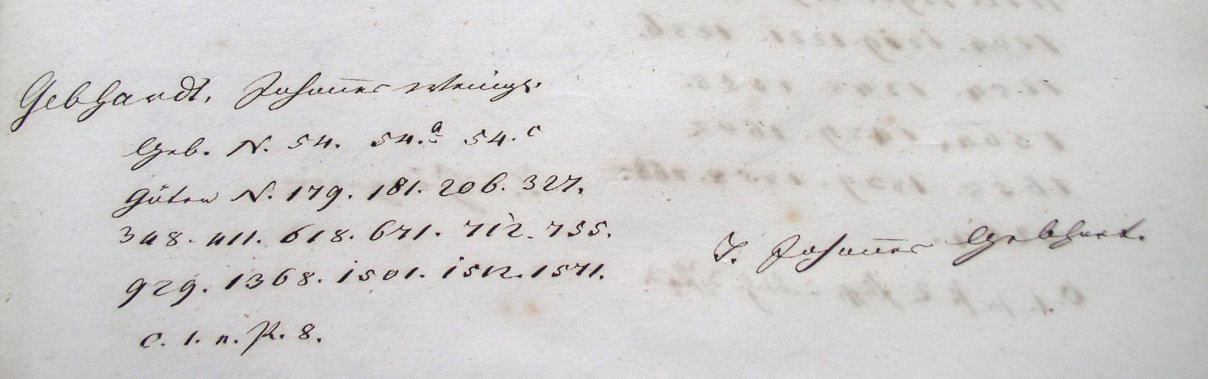 Gebhardt, Johannes
Geb. N. 54. 54.a 54.c
Güter N. 179. 181. 206. 327.
348. 411. 618. 671. 712. 755.
929. 1368. 1501. 1512. 1571.
T. Johannes Gebhart.
C. 1. n. P. 8.